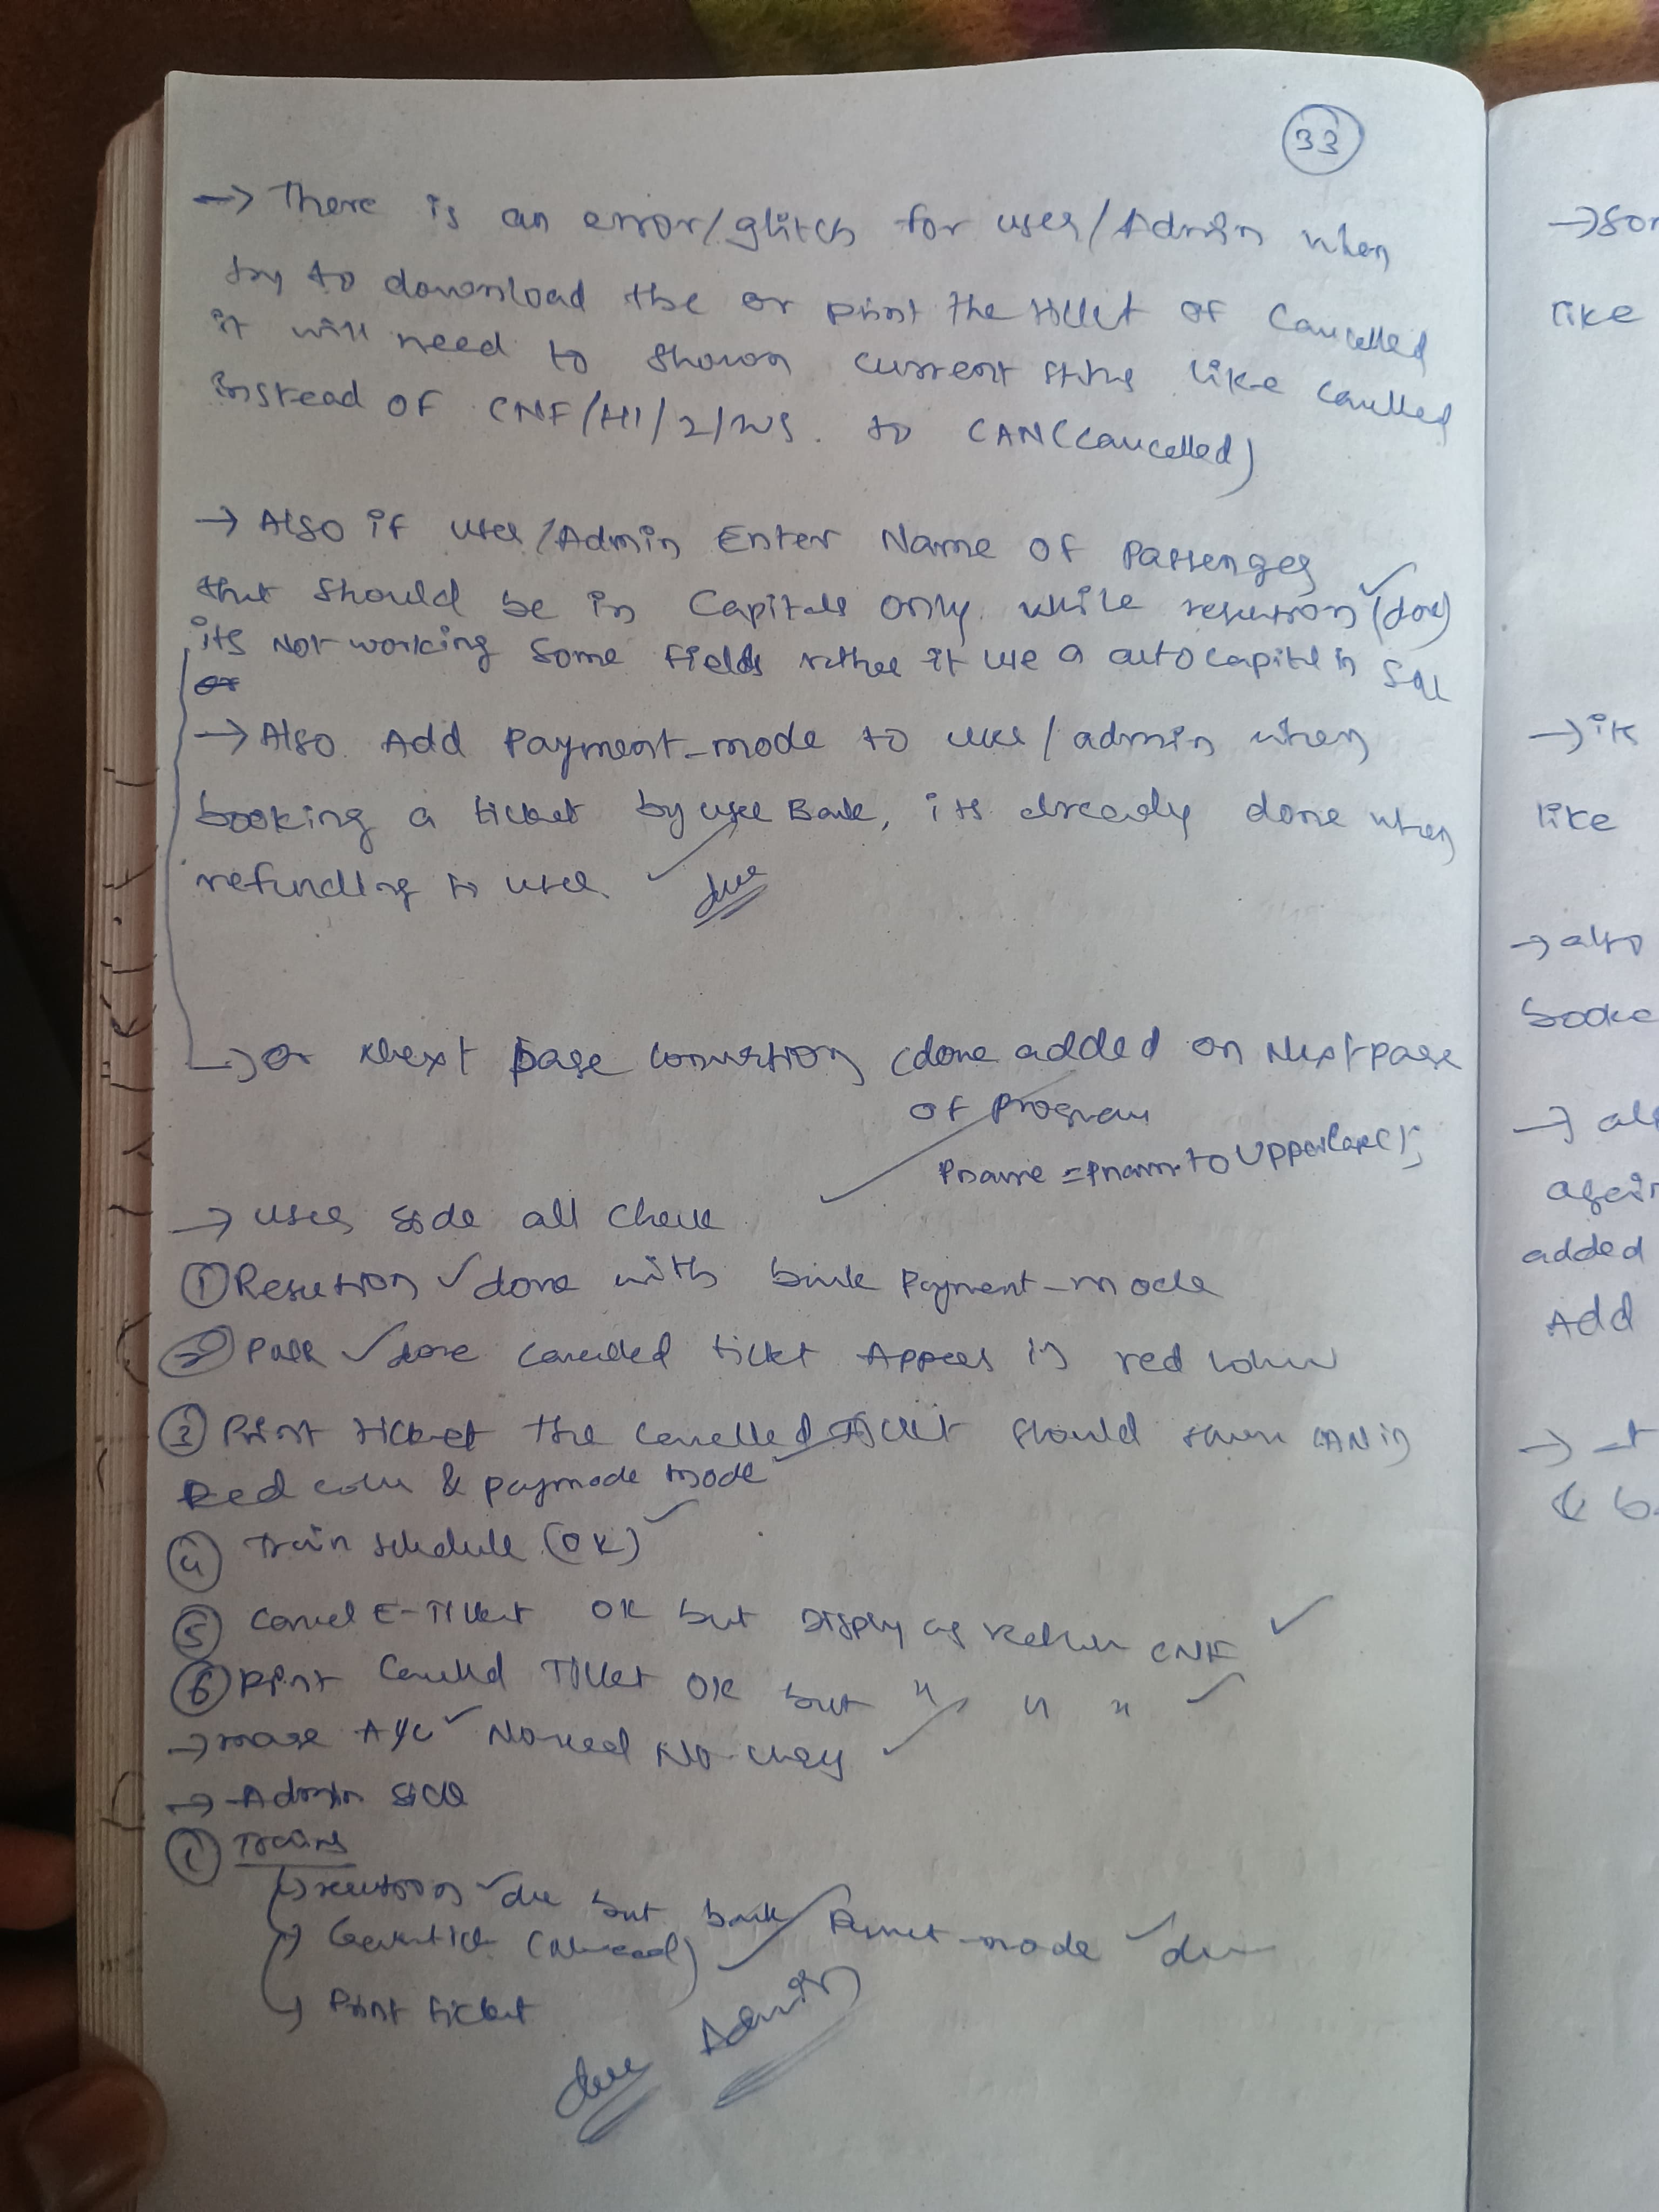 33
→ There is an error/glitch for user/Admin when
try to download the or print the ticket of Cancelled
it will need to shown current sttus like Cancelled
instead of CNF/H1/2/WS. to CAN(Cancelled)
→ Also if user/Admin Enter Name of Passenger
that should be in Capitals only while (done)
its Not working Some fields rather it use a auto capital in SQL
→ Also Add Payment_mode to user/admin when
booking a ticket by user Bank, its already done when
refunding to user done
→ or Next page (done added on Next page
of Program
Pname = pname.toUpperCase();
→ User side all Check
① done with bank Payment-mode
② done Cancelled ticket Appears in red colour
③ Print ticket the Cancelled Ticket should shown CAN in
Red colour & paymode mode
④ Train schedule (OK)
⑤ Cancel E-Ticket OK but Display as CNF
⑥ Print Cancelled Ticket OK but " " "
→ A/C No need No
→ Admin side
① Trains
but bank mode done
→ Print ticket
done Admin
→
like
→
like
→ also
→
added
Add
→